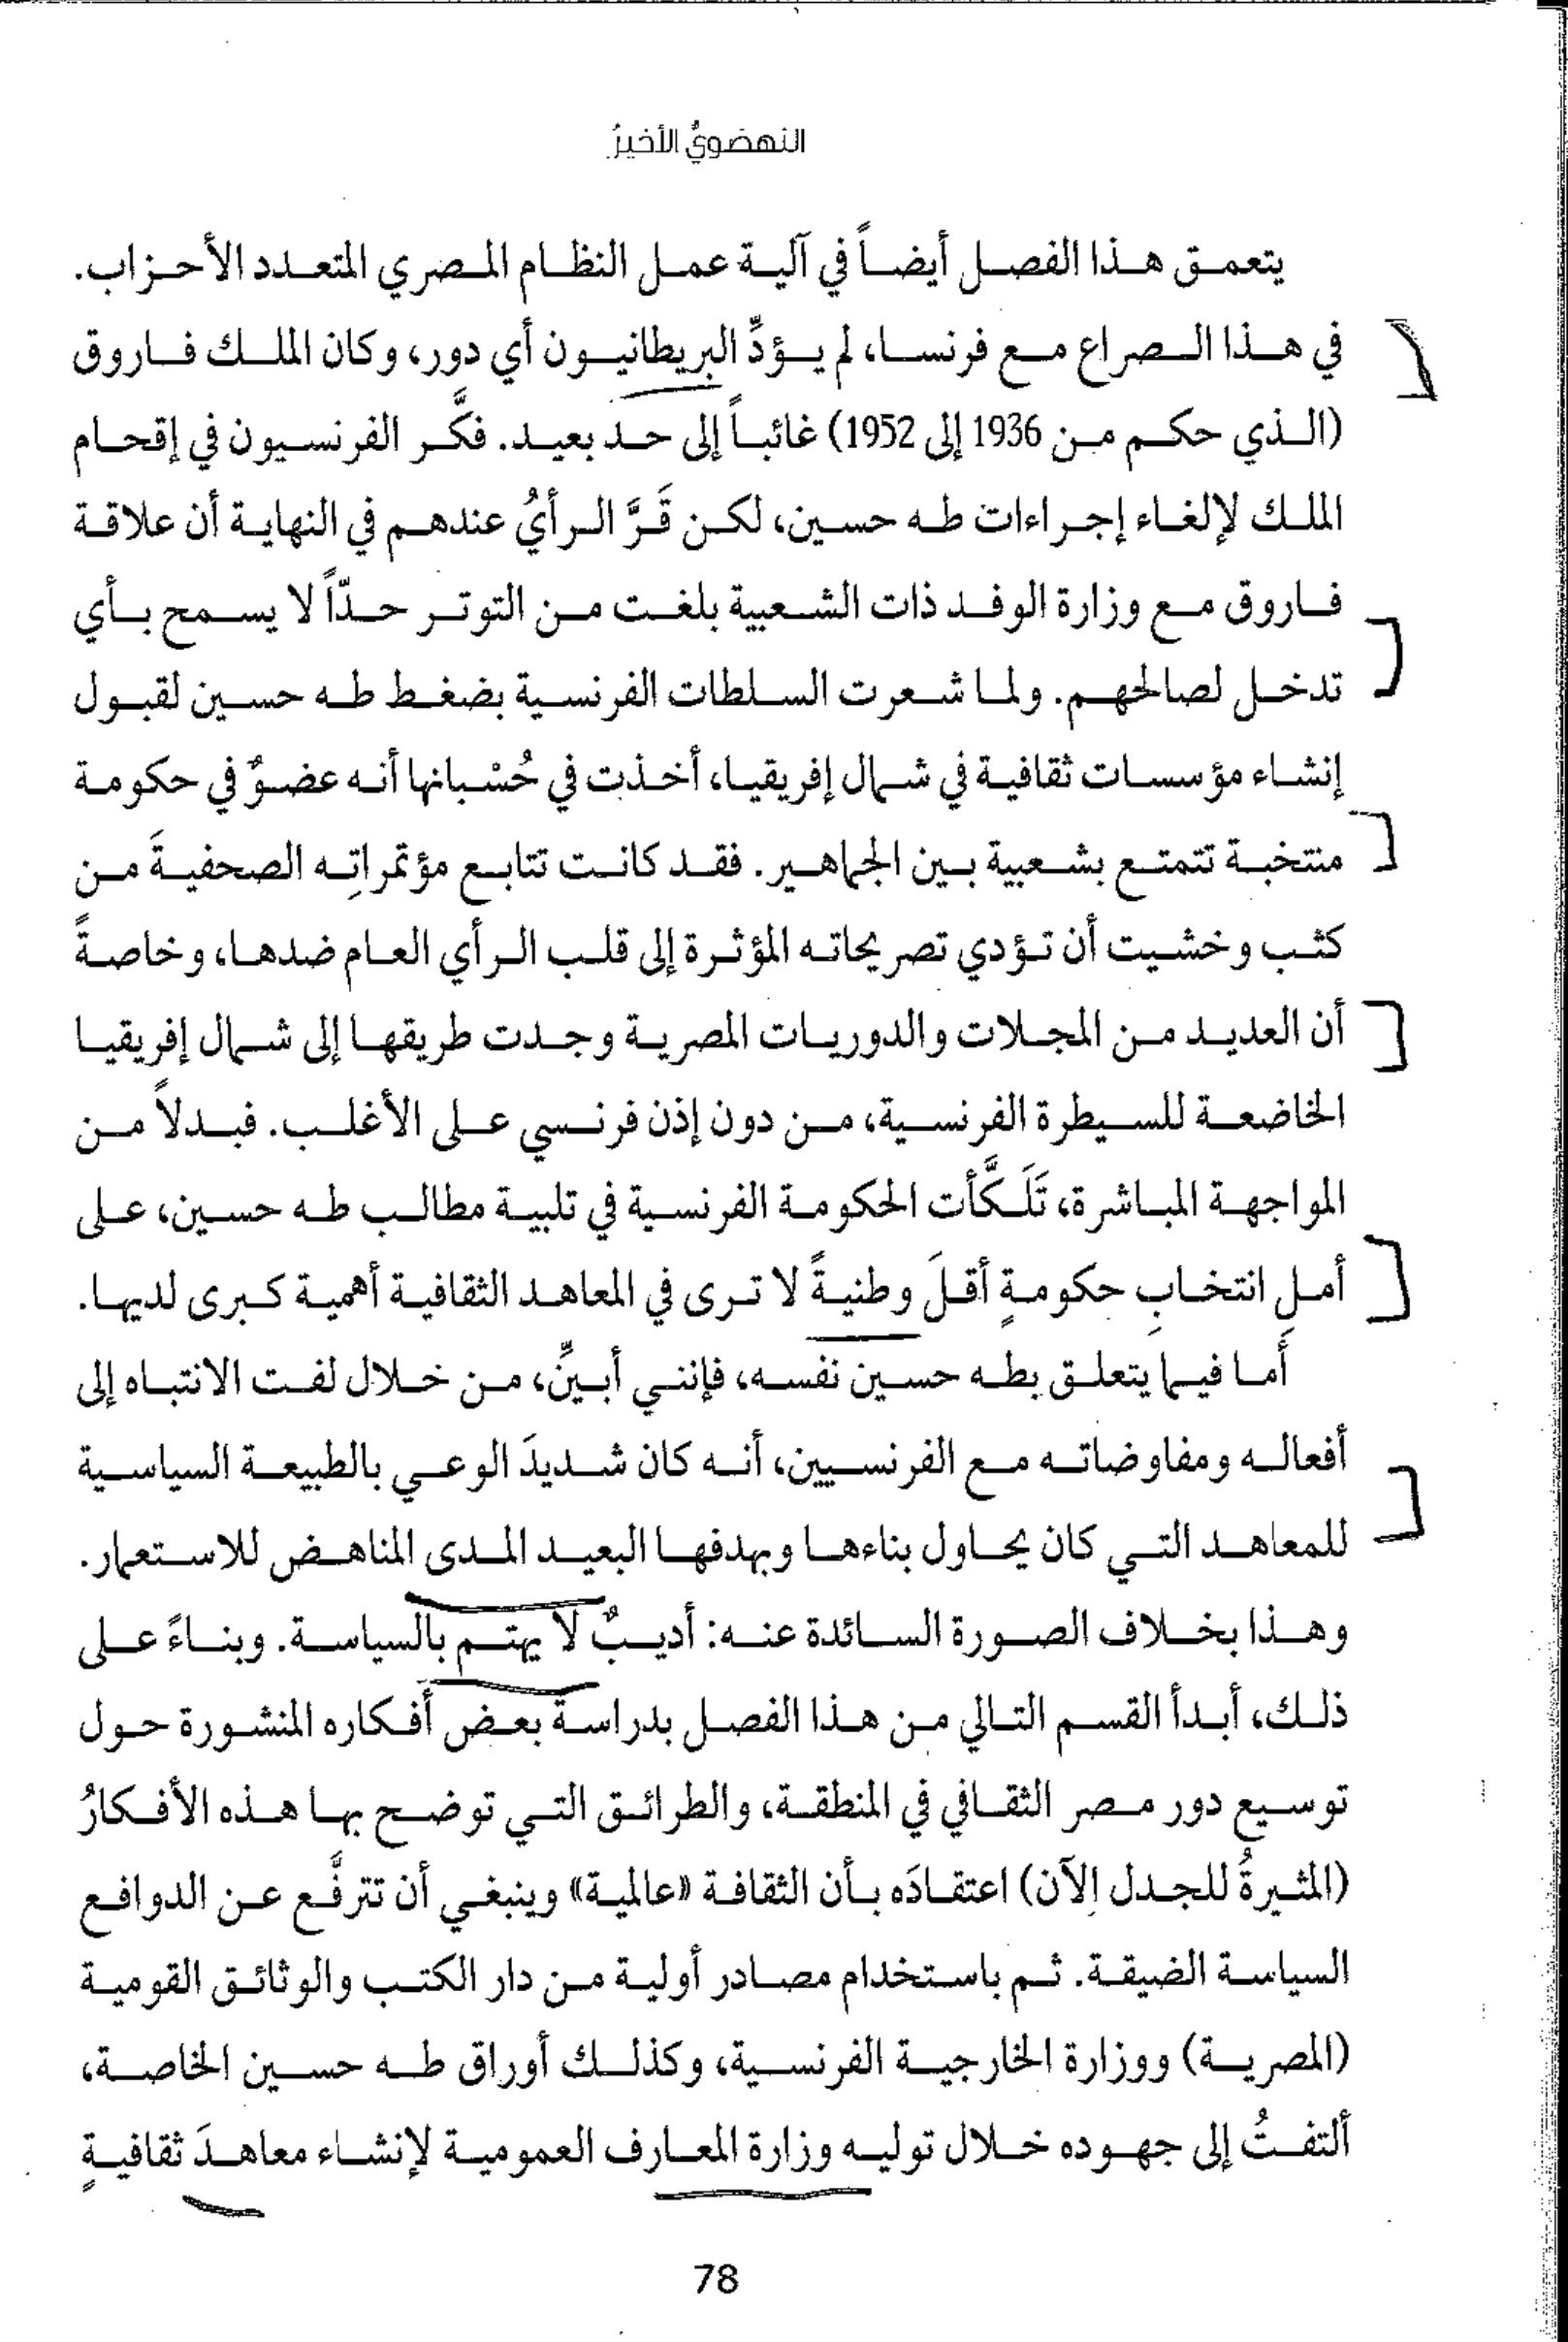 النهضويُّ الأخيرُ
يتعمق هذا الفصل أيضاً في آلية عمل النظام المصري المتعدد الأحزاب.
في هذا الصراع مع فرنسا، لم يؤدِّ البريطانيون أي دور، وكان الملك فاروق
(الذي حكم من 1936 إلى 1952) غائباً إلى حد بعيد. فكَّر الفرنسيون في إقحام
الملك لإلغاء إجراءات طه حسين، لكن قَرَّ الرأيُ عندهم في النهاية أن علاقة
فاروق مع وزارة الوفد ذات الشعبية بلغت من التوتر حدّاً لا يسمح بأي
تدخل لصالحهم. ولما شعرت السلطات الفرنسية بضغط طه حسين لقبول
إنشاء مؤسسات ثقافية في شمال إفريقيا، أخذت في حُسْبانها أنه عضوٌ في حكومة
منتخبة تتمتع بشعبية بين الجماهير. فقد كانت تتابع مؤتمراتِه الصحفيةَ من
كثب وخشيت أن تؤدي تصريحاته المؤثرة إلى قلب الرأي العام ضدها، وخاصةً
أن العديد من المجلات والدوريات المصرية وجدت طريقها إلى شمال إفريقيا
الخاضعة للسيطرة الفرنسية، من دون إذن فرنسي على الأغلب. فبدلاً من
المواجهة المباشرة، تَلَكَّأت الحكومة الفرنسية في تلبية مطالب طه حسين، على
أملِ انتخابِ حكومةٍ أقلَ وطنيةً لا ترى في المعاهد الثقافية أهمية كبرى لديها.
أَما فيما يتعلق بطه حسين نفسه، فإنني أبيِّن، من خلال لفت الانتباه إلى
أفعاله ومفاوضاته مع الفرنسيين، أنه كان شديدَ الوعي بالطبيعة السياسية
للمعاهد التي كان يحاول بناءها وبهدفها البعيد المدى المناهض للاستعمار.
وهذا بخلاف الصورة السائدة عنه: أديبٌ لا يهتم بالسياسة. وبناءً على
ذلك، أبدأ القسم التالي من هذا الفصل بدراسة بعض أفكاره المنشورة حول
توسيع دور مصر الثقافي في المنطقة، والطرائق التي توضح بها هذه الأفكارُ
(المثيرةُ للجدل الآن) اعتقادَه بأن الثقافة «عالمية» وينبغي أن تترفَّع عن الدوافع
السياسة الضيقة. ثم باستخدام مصادر أولية من دار الكتب والوثائق القومية
(المصرية) ووزارة الخارجية الفرنسية، وكذلك أوراق طه حسين الخاصة،
ألتفتُ إلى جهوده خلال توليه وزارة المعارف العمومية لإنشاء معاهدَ ثقافيةٍ
78